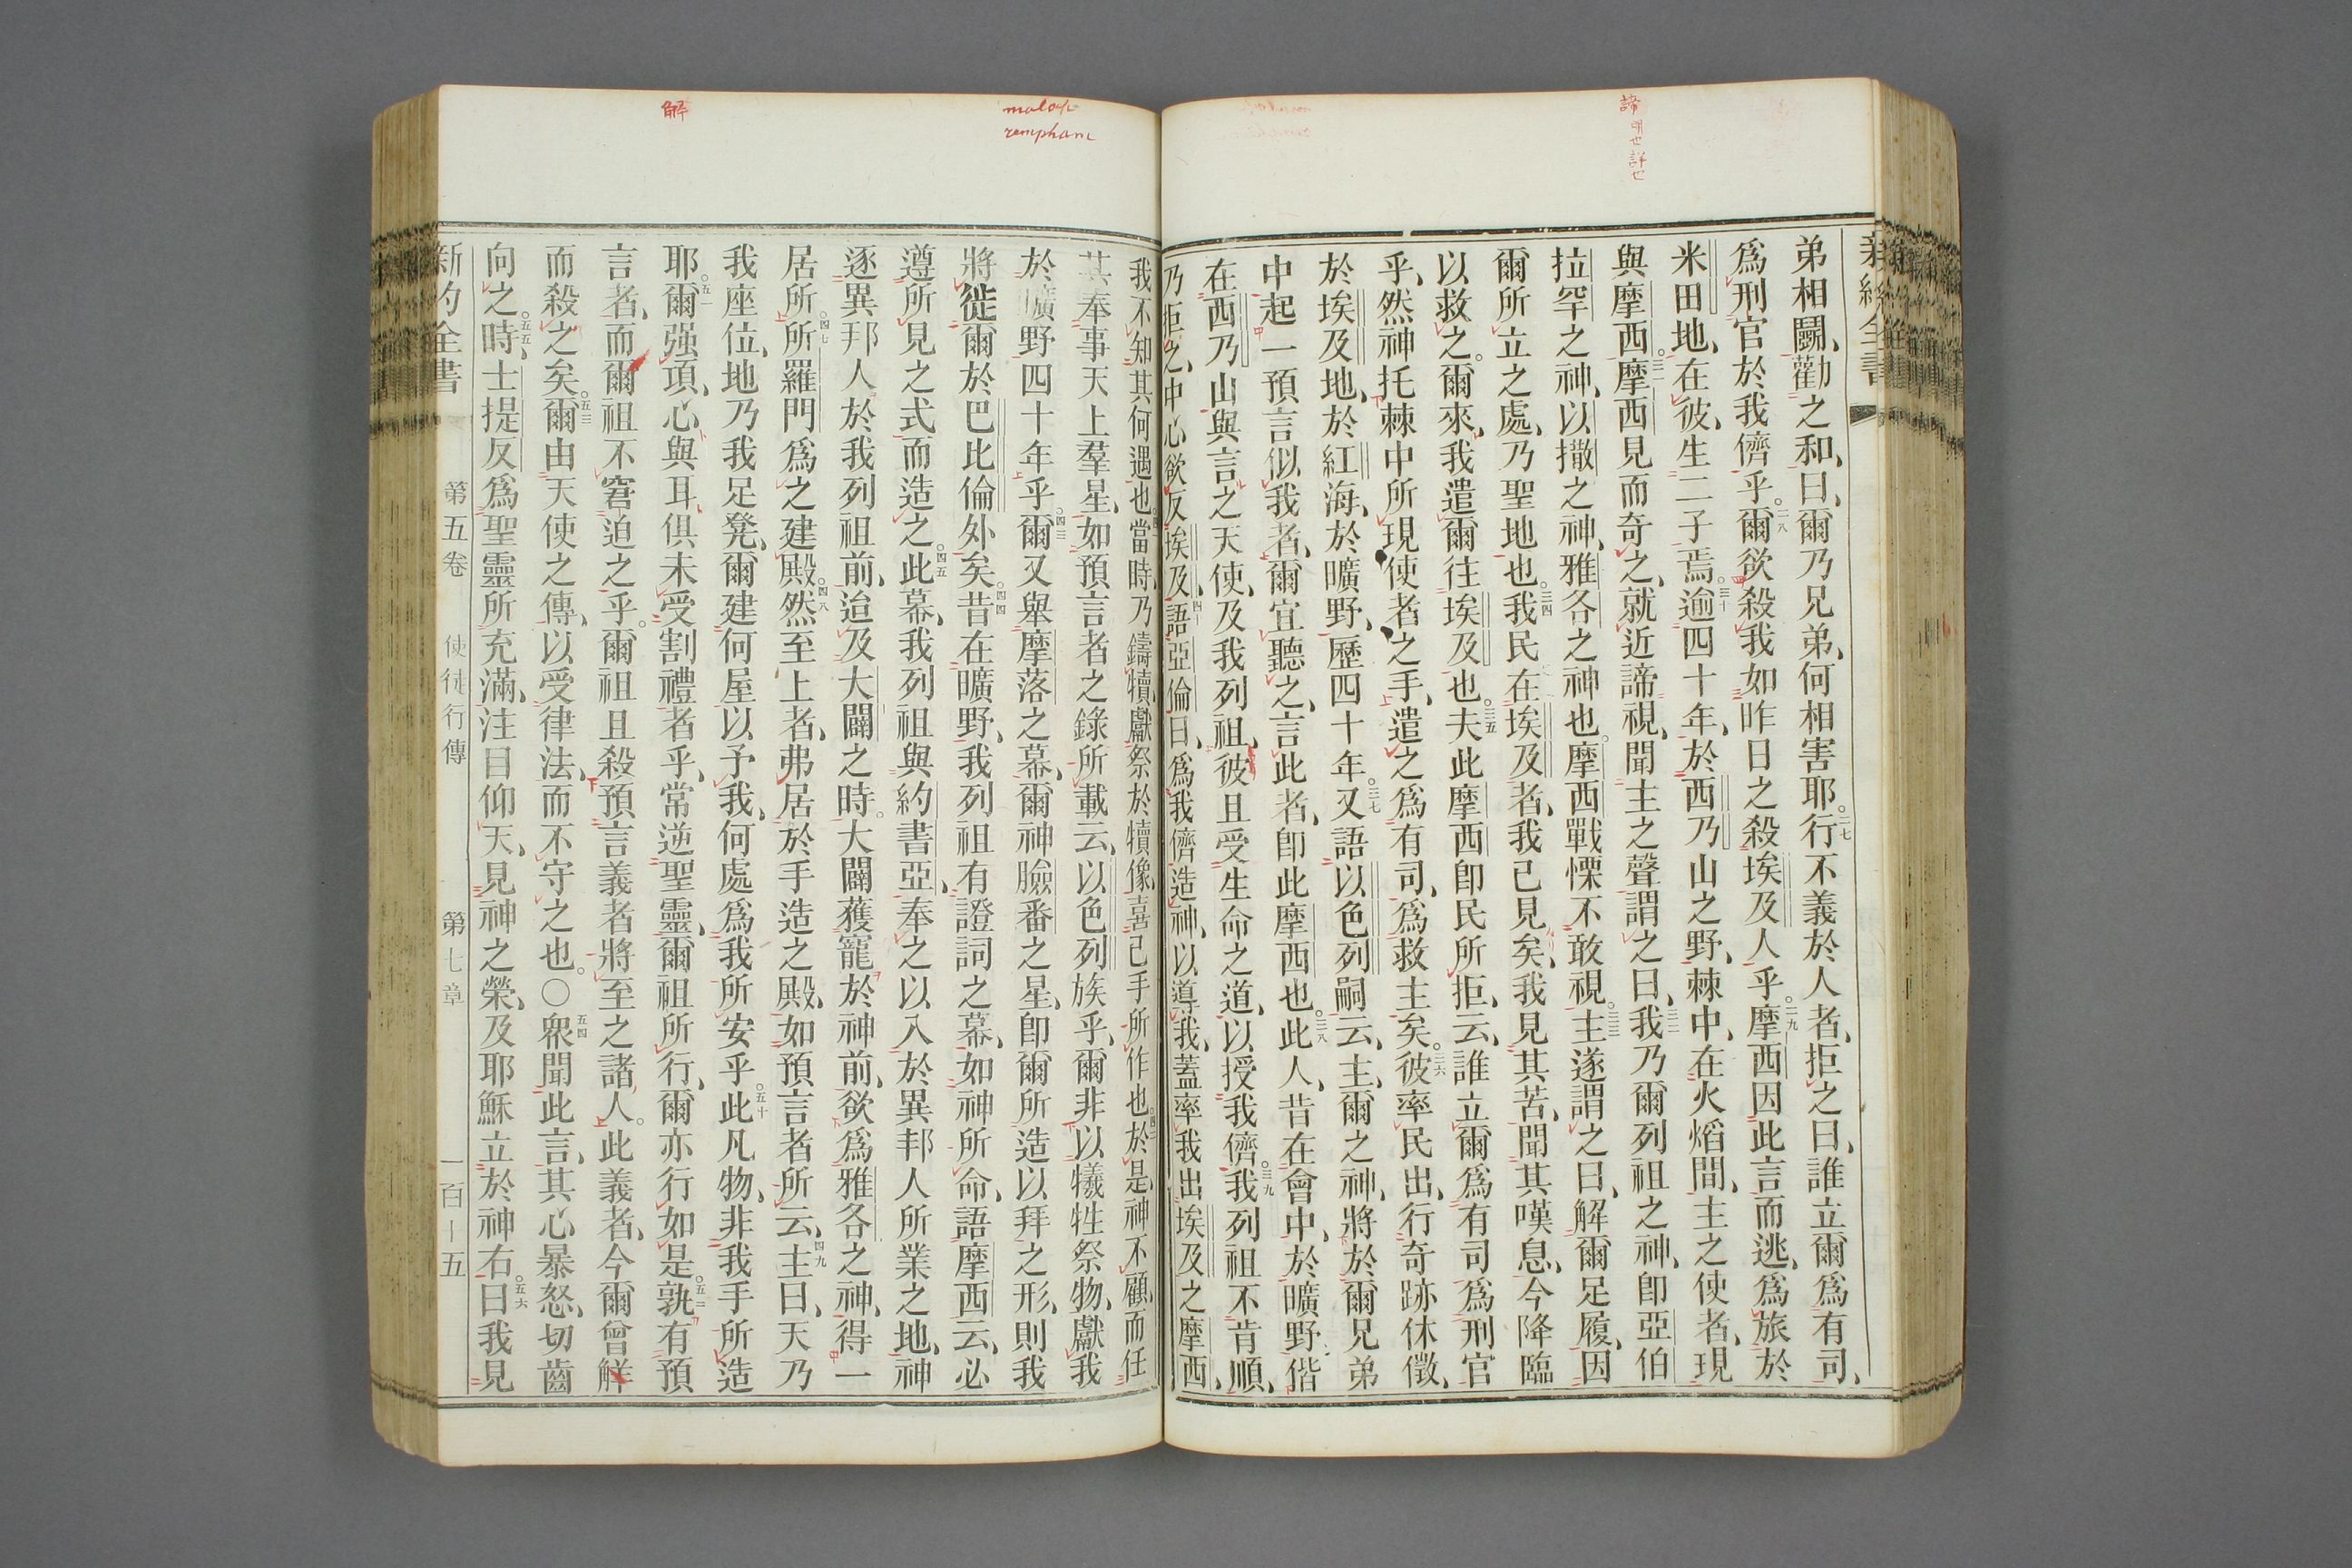 諦 明也詳也
新約全書
弟相鬭、勸之和、曰、爾乃兄弟、何相害耶。二七行不義於人者、拒之曰、誰立爾爲有司、
爲刑官於我儕乎。二八爾欲殺我、如昨日之殺埃及人乎。二九摩西因此言而逃、爲旅於
米田地、在彼、生二子焉。三十逾四十年、於西乃山之野、棘中、在火焰間、主之使者、現
與摩西。三一摩西見而奇之、就近諦視、聞主之聲謂之曰、三二我乃爾列祖之神、卽亞伯
拉罕之神、以撒之神、雅各之神也。摩西戰慄不敢視。三三主遂謂之曰、解爾足履、因
爾所立之處、乃聖地也。三四我民在埃及者、我己見矣、我見其苦、聞其嘆息、今降臨
以救之。爾來、我遣爾往埃及也。三五夫此摩西卽民所拒、云、誰立爾爲有司、爲刑官
乎、然神托棘中所現使者之手、遣之爲有司、爲救主矣。三六彼率民出、行奇跡休徵、
於埃及地、於紅海、於曠野、歷四十年。三七又語以色列嗣云、主、爾之神、將於爾兄弟
中起一預言似我者、爾宜聽之、言此者、卽此摩西也。三八此人、昔在會中、於曠野、偕
在西乃山與言之天使、及我列祖、彼且受生命之道、以授我儕。三九我列祖不肯順、
乃拒之、中心欲反埃及、四十語亞倫曰、爲我儕造神、以導我、蓋率我出埃及之摩西、
molock
rempham
解
我不知其何遇也。四一當時、乃鑄犢、獻祭於犢像、喜己手所作也。四二於是、神不顧、而任
其奉事天上羣星、如預言者之錄所載云、以色列族乎、爾非以犧牲祭物、獻我
於曠野四十年乎。四三爾又舉摩落之幕、爾神臉番之星、卽爾所造以拜之形、則我
將徙爾於巴比倫外矣。四四昔在曠野、我列祖有證詞之幕、如神所命、語摩西云、必
遵所見之式而造之。四五此幕、我列祖與約書亞、奉之以入於異邦人所業之地、神
逐異邦人於我列祖前、迨及大闢之時。大闢蒦寵於神前、欲爲雅各之神、得一
居所。四七所羅門爲之建殿。四八然至上者、弗居於手造之殿、如預言者所云、四九主曰、天乃
我座位、地乃我足凳、爾建何屋以予我、何處爲我所安乎。五十此凡物、非我手所造
耶。五一爾强項、心與耳、俱未受割禮者乎、常逆聖靈、爾祖所行、爾亦行如是。五二孰有預
言者、而爾祖不窘迫之乎。爾祖且殺預言義者將至之諸人。此義者、今爾曾解
而殺之矣。五三爾由天使之傳、以受律法、而不守之也。〇五四衆聞此言、其心暴怒、切齒
向之。五五時、士提反爲聖靈所充滿、注目仰天、見神之榮、及耶穌立於神右。五六曰、我見
新約全書 第五卷 使徒行傳 第七章 一百十五